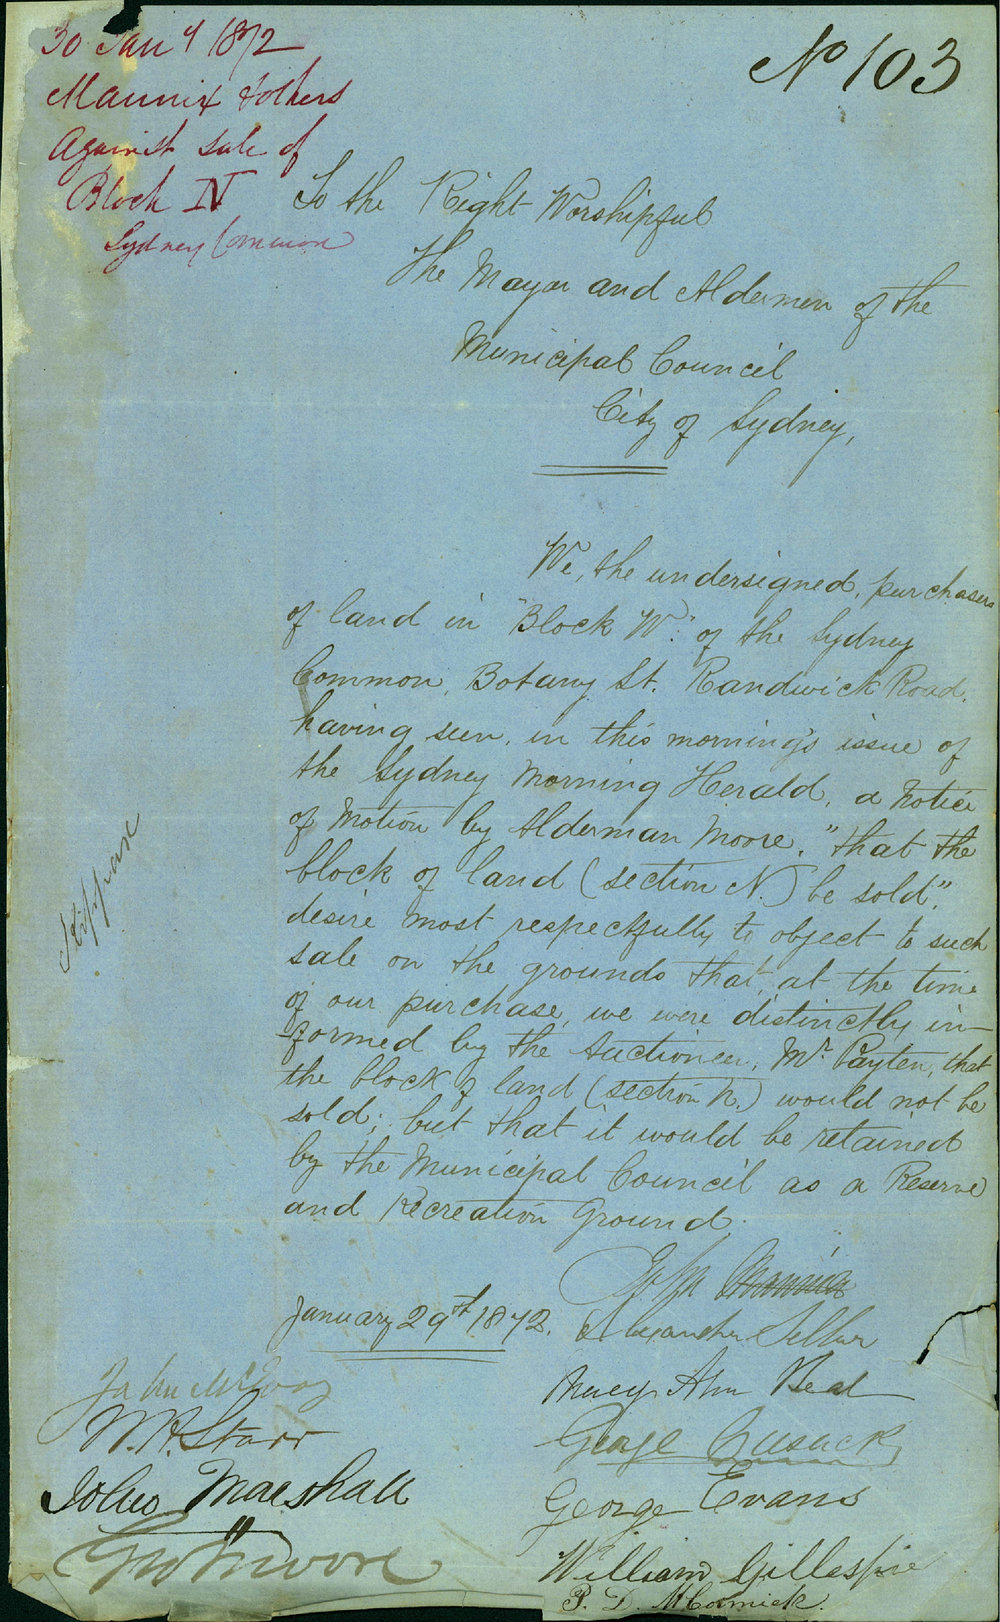 30 Jany 1872
Mannix & others
Against sale of
Block IV
Sydney Common
No 103
To the Right Worshipful
The Mayor and Aldermen of the
Municipal Council
City of Sydney,
We, the undersigned, purchasers
of land in "Block W." of the Sydney
Common, Botany St. Randwick Road,
having seen, in this morning's issue of
the Sydney Morning Herald, a Notice
of Motion by Alderman Moore, "that the
block of land (section N.) be sold",
desire most respectfully to object to such
sale on the grounds that, at the time
of our purchase, we were distinctly in-
formed by the Auctioneer, Mr. Payten, that
the block of land (section N.) would not be
sold; but that it would be retained
by the Municipal Council as a Reserve
and Recreation Ground.
John Mannix
January 29th 1872.
Alexander
John McEvoy
Ann Beal
W. H. Starr
George Cusack
John Marshall
George Evans
Geo Moore
William Gillespie
P. D. McCormick.